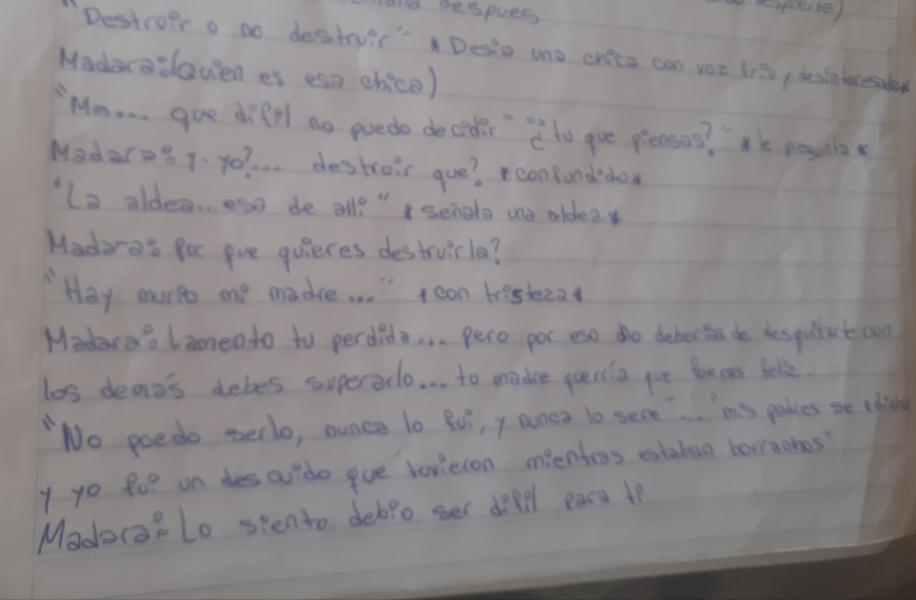 despues
"Destruir o no destruir" *Desia una chica con voz fria y desinteresada*
Madara:(quien es esa chica)
"Mm... que difil no puedo decidir" "¿tu que piensas?" *le pregunta*
Madara: y-yo?... destruir que? *confundido*
"La aldea...esa de alli" *señala una aldea*
Madara: por que quieres destruirla?
"Hay murio mi madre..." *con tristeza*
Madara: Lamento tu perdida... pero por eso no deberias de desquitarte con
los demás debes superarlo... tu madre querría que fueras feliz.
"No puedo serlo, nunca lo fui, y nunca lo sere"..."mis padres se odiaban
y yo fui un descuido que tuvieron mientras estaban borrachos"
Madara: Lo siento debio ser difil para ti